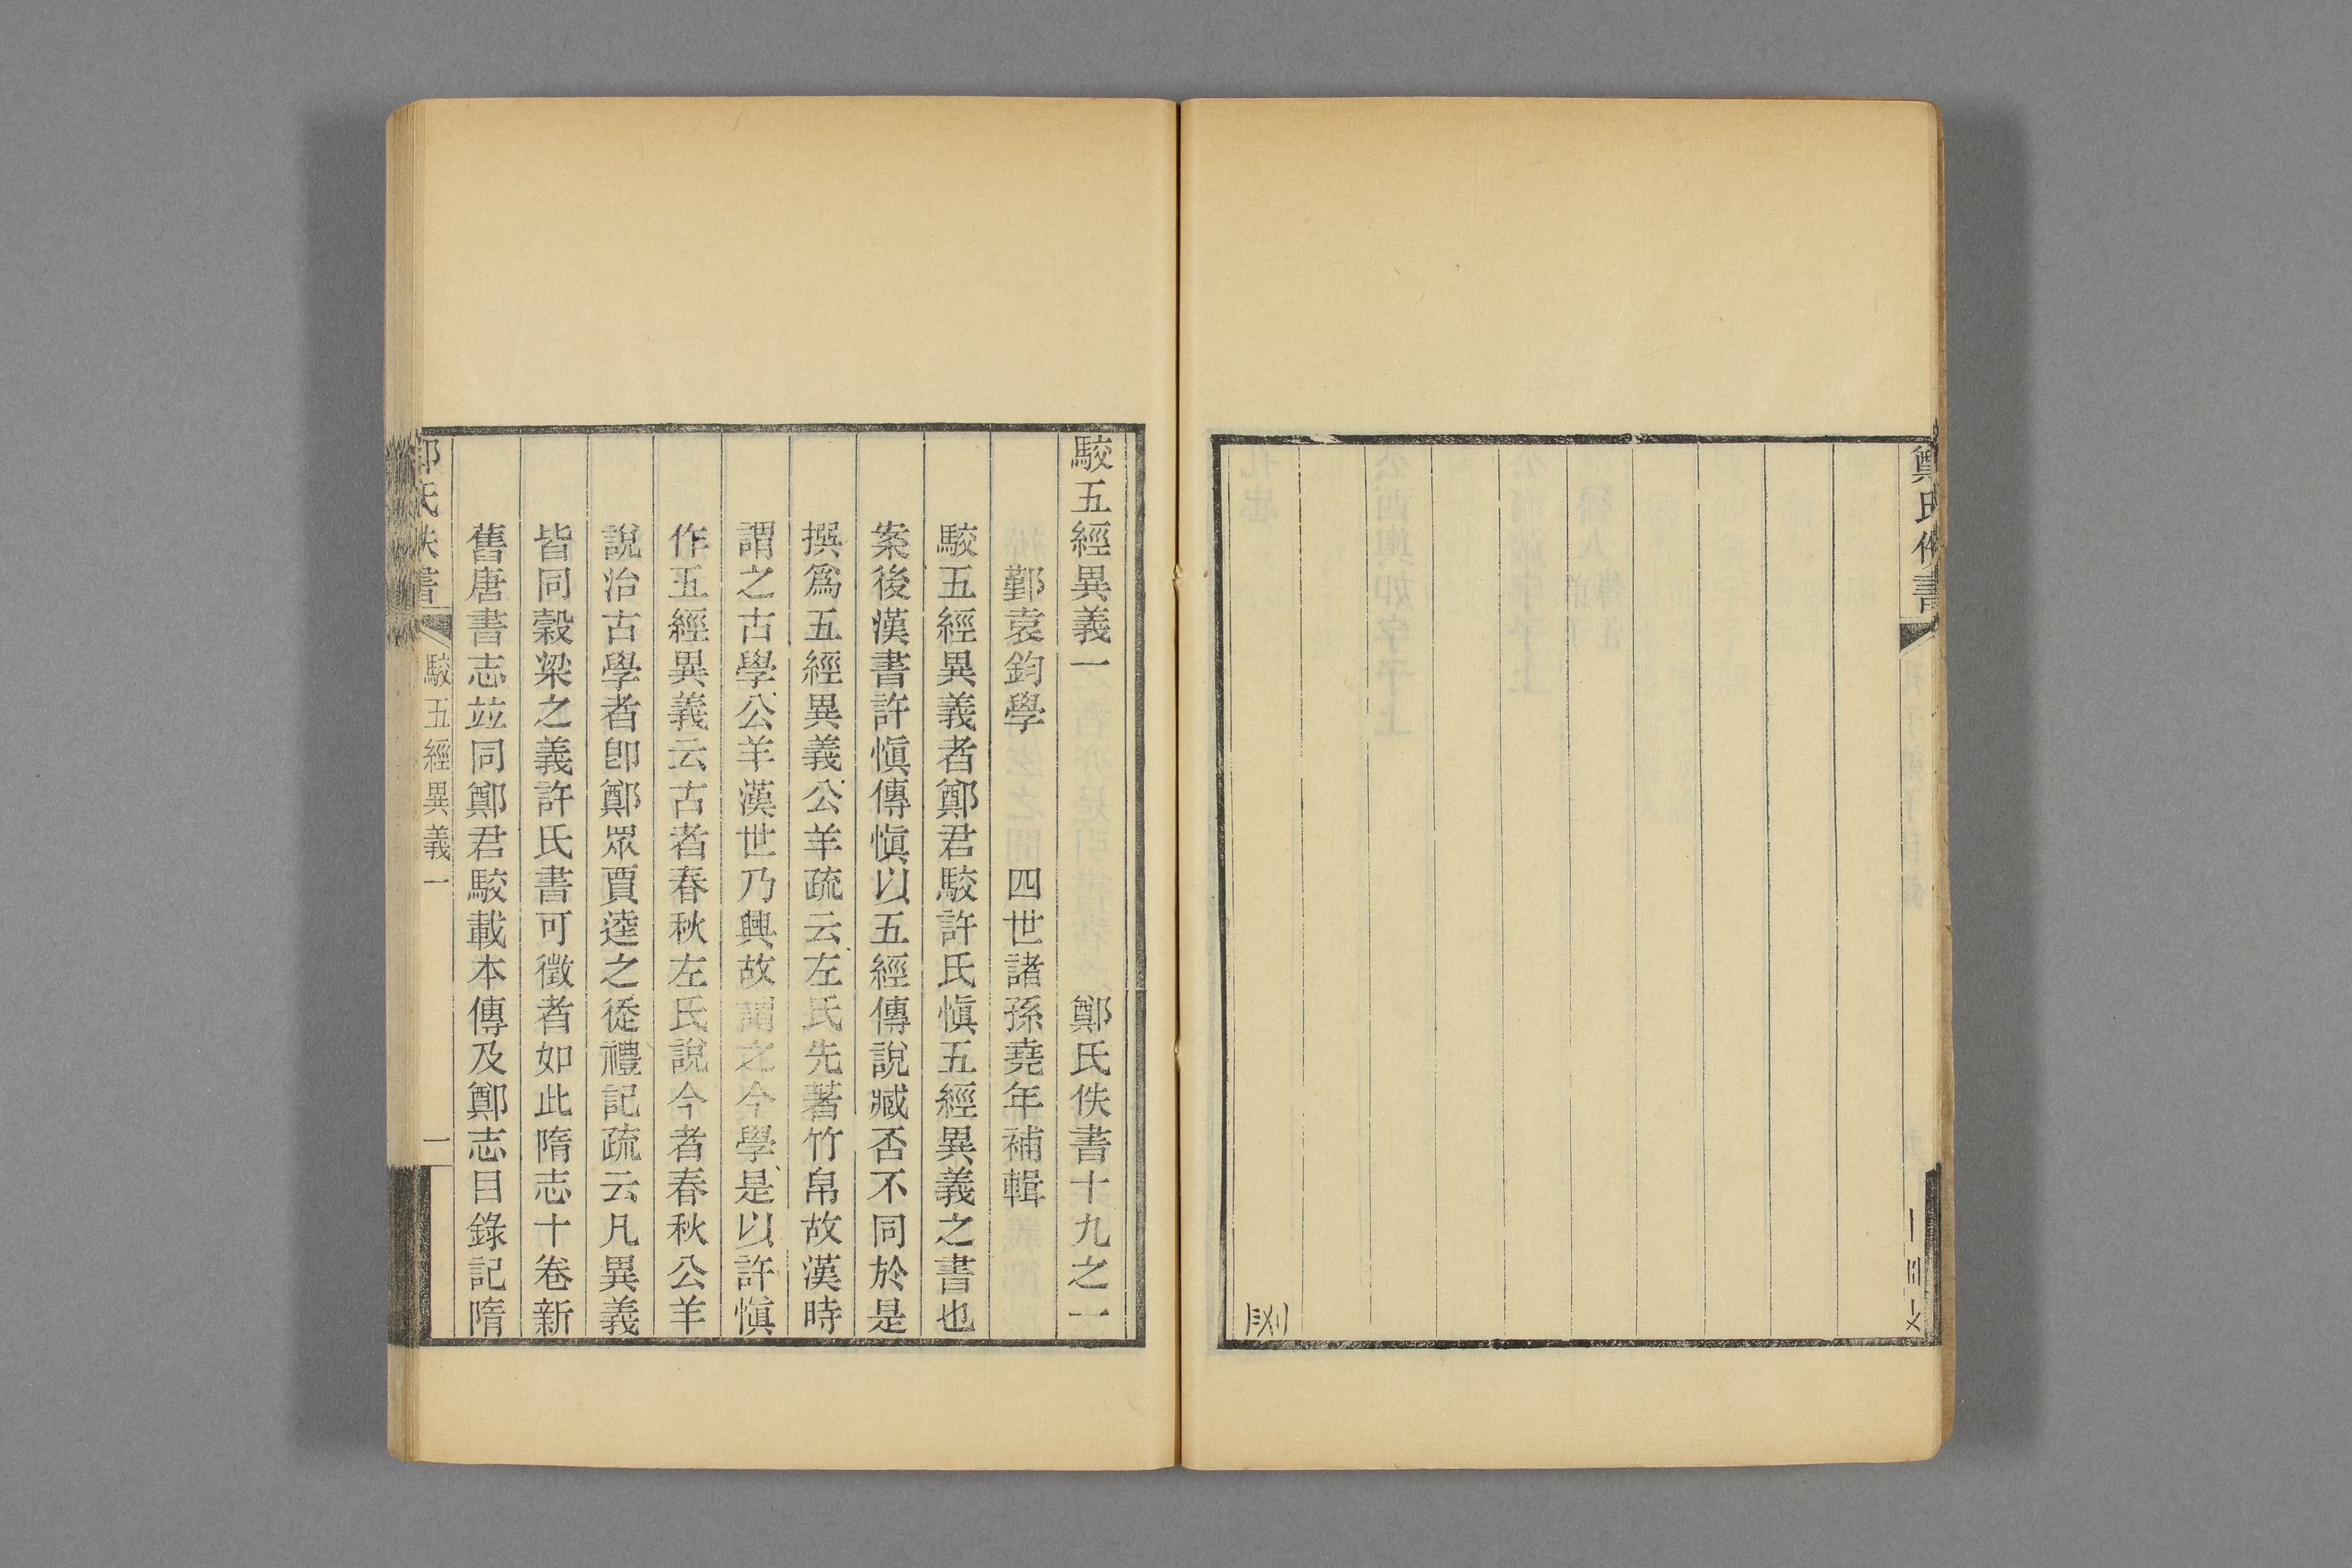 鄭氏佚書
駮五經異義一 鄭氏佚書十九之一
鄞袁鈞學 四世諸孫堯年補輯
駮五經異義者鄭君駮許氏愼五經異義之書也
案後漢書許愼傳愼以五經傳說臧否不同於是
撰爲五經異義公羊疏云左氏先著竹帛故漢時
謂之古學公羊漢世乃興故謂之今學是以許愼
作五經異義云古者春秋左氏說今者春秋公羊
說治古學者卽鄭眾賈逵之徒禮記疏云凡異義
皆同穀梁之義許氏書可徵者如此隋志十卷新
舊唐書志竝同鄭君駮載本傳及鄭志目錄記隋
鄭氏佚書 駮五經異義一 一